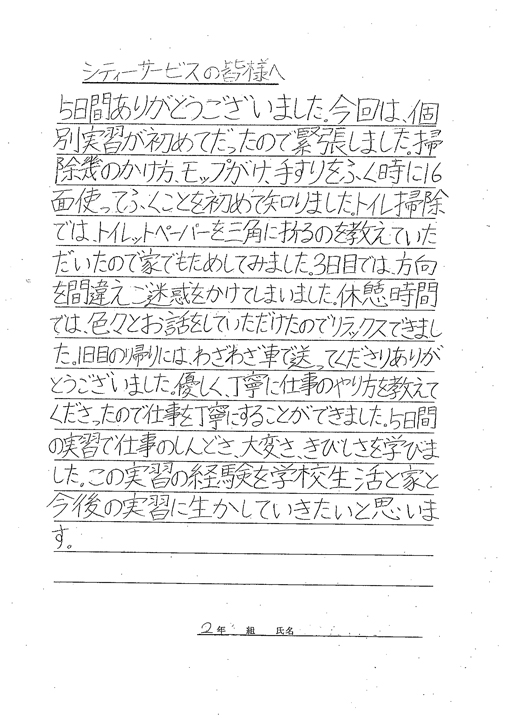 シティーサービスの皆様へ
5日間ありがとうございました。今回は、個
別実習が初めてだったので緊張しました。掃
除幾のかけ方、モップがけ、手すりをふく時に16
面使ってふくことを初めて知りました。トイレ掃除
では、トイレットペーパーを三角に折るのを教えていた
だいたので家でもためしてみました。3日目では、方向
を間違えご迷惑をかけてしまいました。休憩時間
では、色々とお話をしていただけたのでリラックスできまし
た。1日目の帰りには、わざわざ車で送ってくださりありが
とうございました。優しく、丁寧に仕事のやり方を教えて
くださったので仕事を丁寧にすることができました。5日間
の実習で仕事のしんどさ、大変さ、きびしさを学びま
した。この実習の経験を学校生活と家と
今後の実習に生かしていきたいと思いま
す。
2年 組 氏名